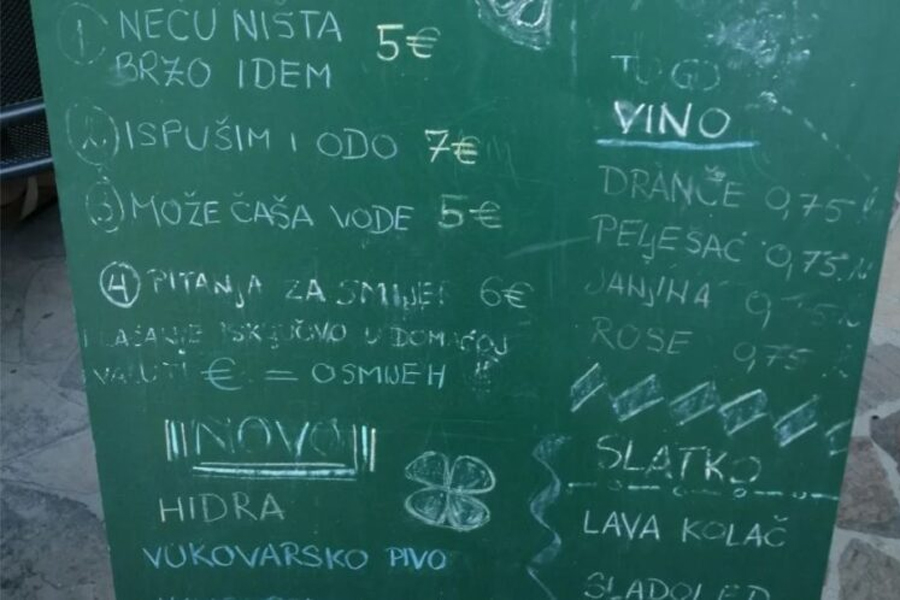 1 NEĆU NIŠTA 5€
BRZO IDEM
2 ISPUŠIM I ODO 7€
3 MOŽE ČAŠA VODE 5€
4 PITANJA ZA SMIJER 6€
PLAĆANJE ISKLJUČIVO U DOMAĆOJ
VALUTI € = OSMIJEH
NOVO
HIDRA
VUKOVARSKO PIVO
TO GO
VINO
DRANČE 0,75
PELJEŠAC 0,75
JANJINA
ROSE 0,75
SLATKO
LAVA KOLAČ
SLADOLED